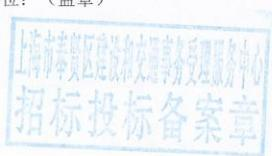 位：（盖章）
上海市奉贤区建设和交通事务受理服务中心
招标投标备案章